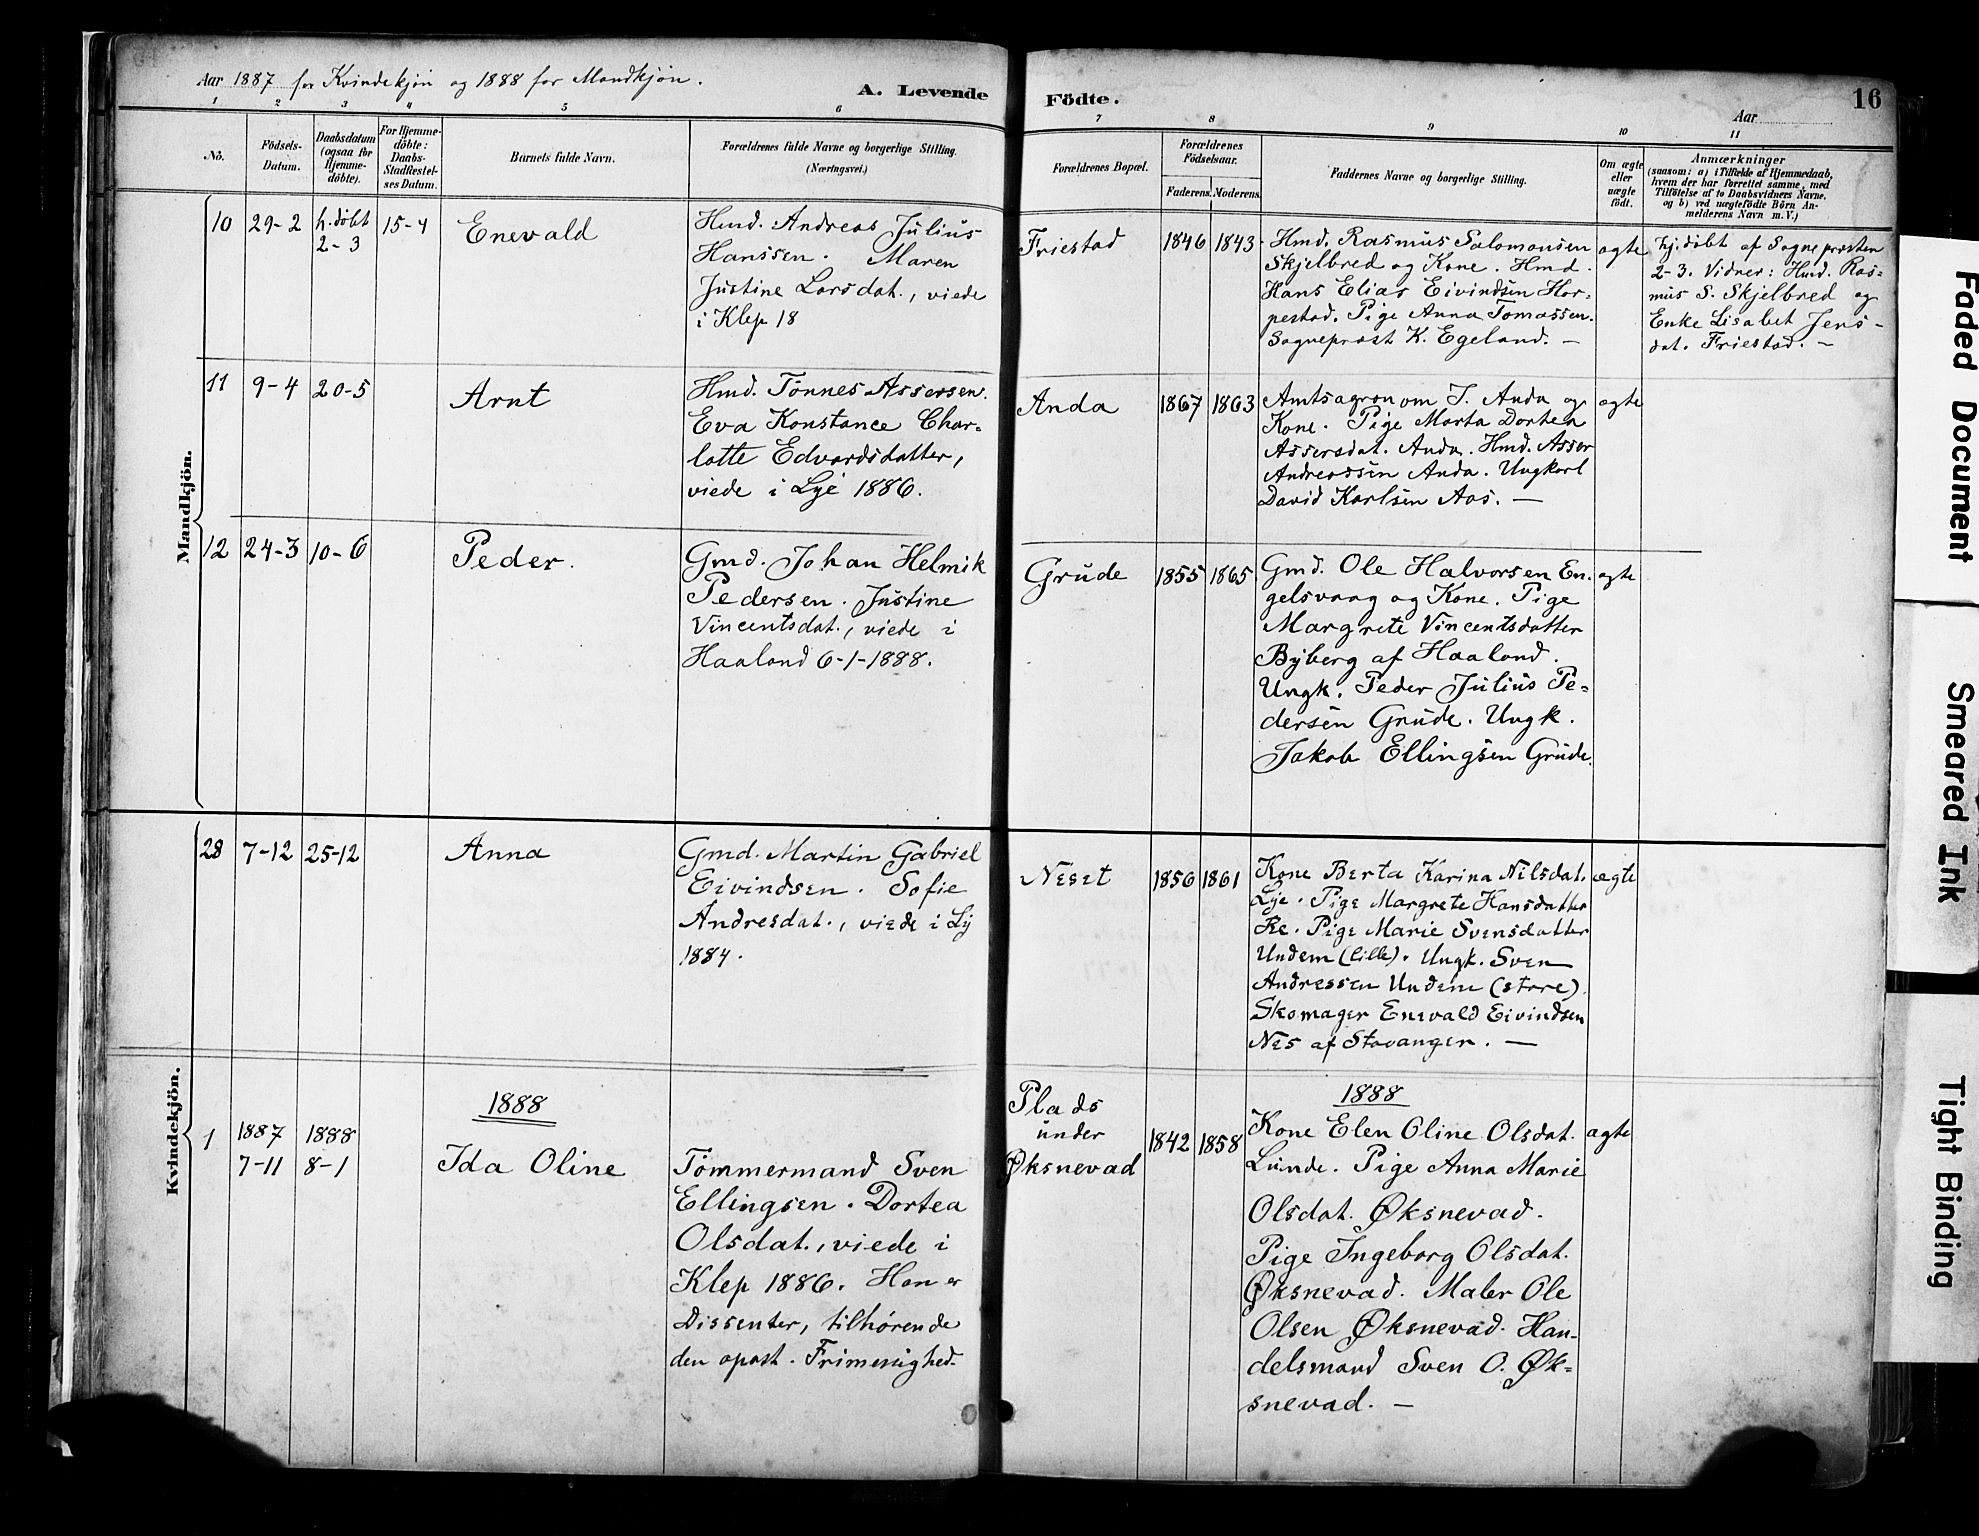 Aar 1887 for Kvindekjön og 1888 for Mandkjön.
A. Levende Födte.
Aar
16
1 2 3 4 5 6 7 8 9 10 11
No.
Födsels-
Datum.
Daabsdatum
(ogsaa for
Hjemme-
döbte).
For Hjemme-
döbte:
Daabs-
Stadfæstel-
ses Datum.
Barnets fulde Navn.
Forældrenes fulde Navne og borgerlige Stilling.
(Næringsvei.)
Forældrenes Bopæl.
Forældrenes
Födselsaar.
Faderens. Moderens.
Faddernes Navne og borgerlige Stilling.
Om ægte
eller
uægte
født.
Anmærkninger
(saasom: a) i Tilfælde af Hjemmedaab,
hvem der har forrettet samme, med
Tilföielse af to Daabsvidners Navne,
og b) ved uægtefödte Börn An-
melderens Navn m.V.)
Mandkjön.
10
29-2
h. døbt
2-3
15-4
Enevald
Hmd. Andreas Julius
Hanssen. Maren
Justine Larsdat., viede
i Klep 18
Friestad
1846
1843
Hmd. Rasmus Salomonsen
Skjelbred og Kone. Hmd.
Hans Elias Eivindsen Hor-
pestad. Pige Anna Tomassen.
Sogneprost K. Egeland. —
ægte
hj. døbt af Sogneprosten
2-3. Vidner: Hmd. Ras-
mus S. Skjelbred og
Enke Lisabet Jens-
dat. Friestad. —
11
9-4
20-5
Arnt
Hmd. Tønnes Assersen.
Eva Konstance Char-
lotte Edvardsdatter,
viede i Lye 1886.
Anda
1867
1863
Amtsagronom J. Anda og
Kone. Pige Marta Dortea
Assersdat. Anda. Hmd. Asser
Andreassen Anda. Ungkarl
David Karlsen Aas. —
ægte
12
24-3
10-6
Peder.
Gmd. Johan Helmik
Pedersen. Justine
Vincentsdat., viede i
Haaland 6-1-1888.
Grude
1855
1865
Gmd. Ole Halvorsen En-
gelsvaag og Kone. Pige
Margrete Vincentsdatter
Byberg af Haaland.
Ungk. Peder Julius Pe-
dersen Grude. Ungk.
Jakob Ellingsen Grude.
ægte
Kvindekjön.
28
7-12
25-12
Anna
Gmd. Martin Gabriel
Eivindsen. Sofie
Andresdat., viede i Ly
1884.
Neset
1856
1861
Kone Berta Karina Nilsdat.
Lye. Pige Margrete Hansdatter
Re. Pige Marie Svensdatter
Undem (lille). Ungk. Sven
Andressen Undem (store).
Skomager Enevald Eivindsen
Nes af Stavanger. —
ægte
1888
1
1887
7-11
1888
8-1
Ida Oline
Tømmermand Sven
Ellingsen. Dortea
Olsdat., viede i
Klep 1886. Han er
Dissenter, tilhørende
den apost. Frimenighed.
Plads
under
Øksnevad
1842
1858
1888
Kone Elen Oline Olsdat.
Lunde. Pige Anna Marie
Olsdat. Øksnevad.
Pige Ingeborg Olsdat.
Øksnevad. Maler Ole
Olsen Øksnevad. Han-
delsmand Sven O. Øk-
snevad. —
ægte
Faded Document
Smeared Ink
Tight Binding